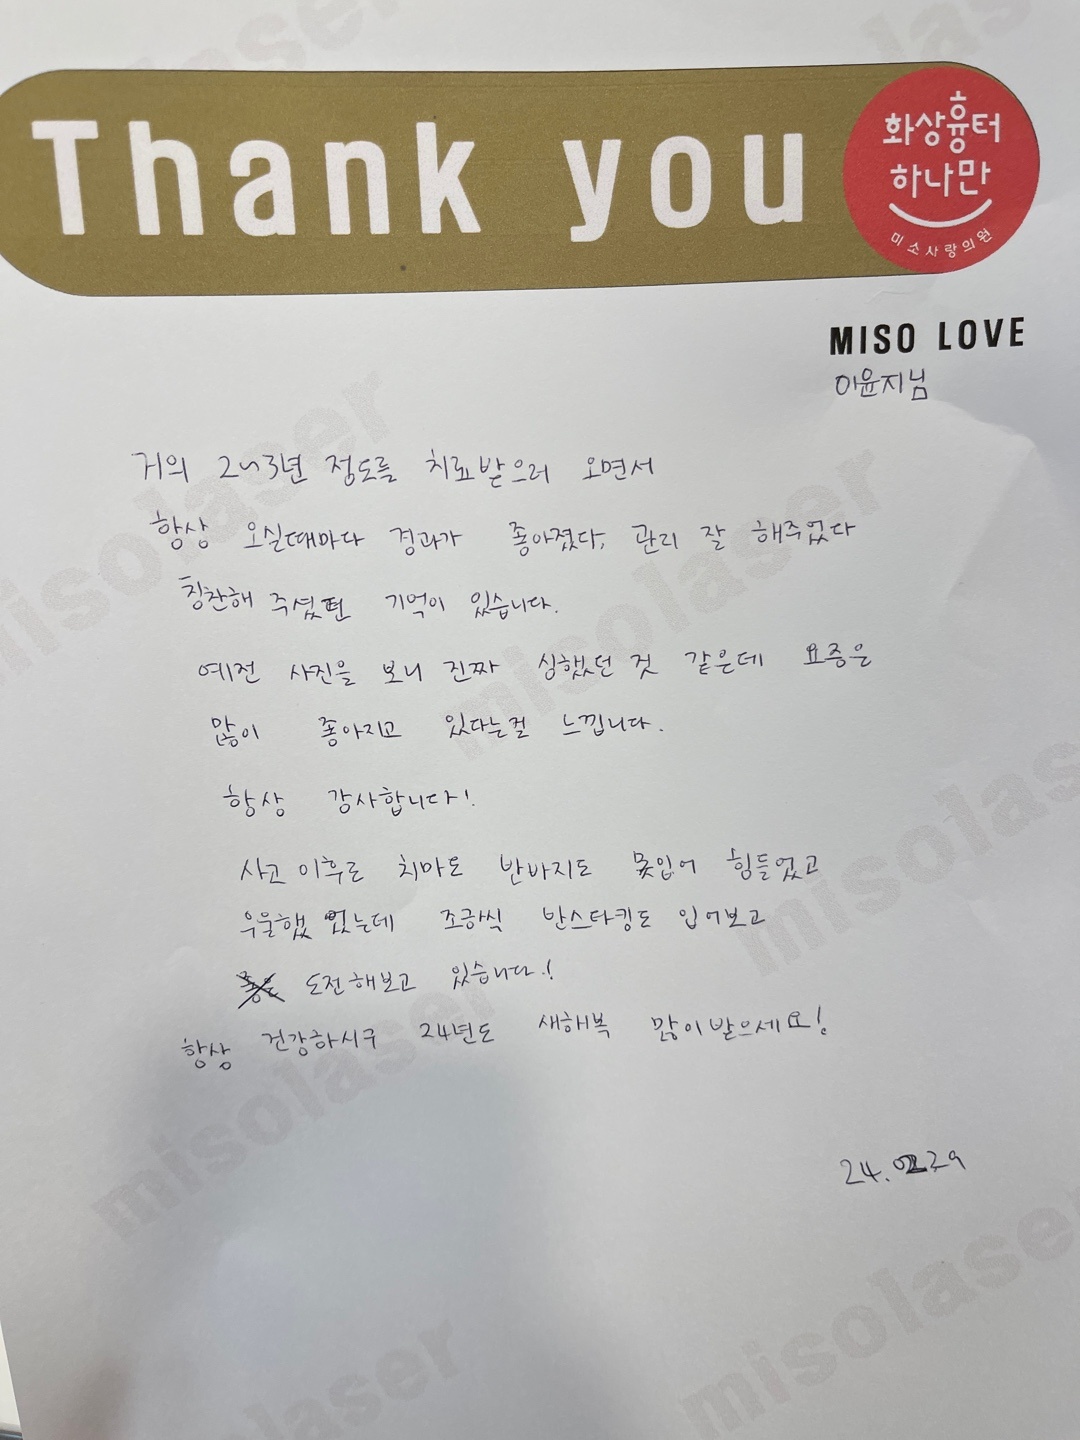 Thank you
화상흉터
하나만
미소사랑의원
MISO LOVE
이윤지님
거의 2~3년 정도를 치료받으러 오면서
항상 오실때마다 경과가 좋아졌다, 관리 잘 해주었다
칭찬해 주셨던 기억이 있습니다.
예전 사진을 보니 진짜 심했던 것 같은데 요즘은
많이 좋아지고 있다는걸 느낍니다.
항상 감사합니다!
사고 이후로 치마도 반바지도 못입어 힘들었고
우울했었는데 조금씩 반스타킹도 입어보고
도전해보고 있습니다!
항상 건강하시구 24년도 새해복 많이받으세요!
24.02.29
misolaser
misolaser
misolaser
misolaser
misolaser
misolaser
misolaser
misolaser